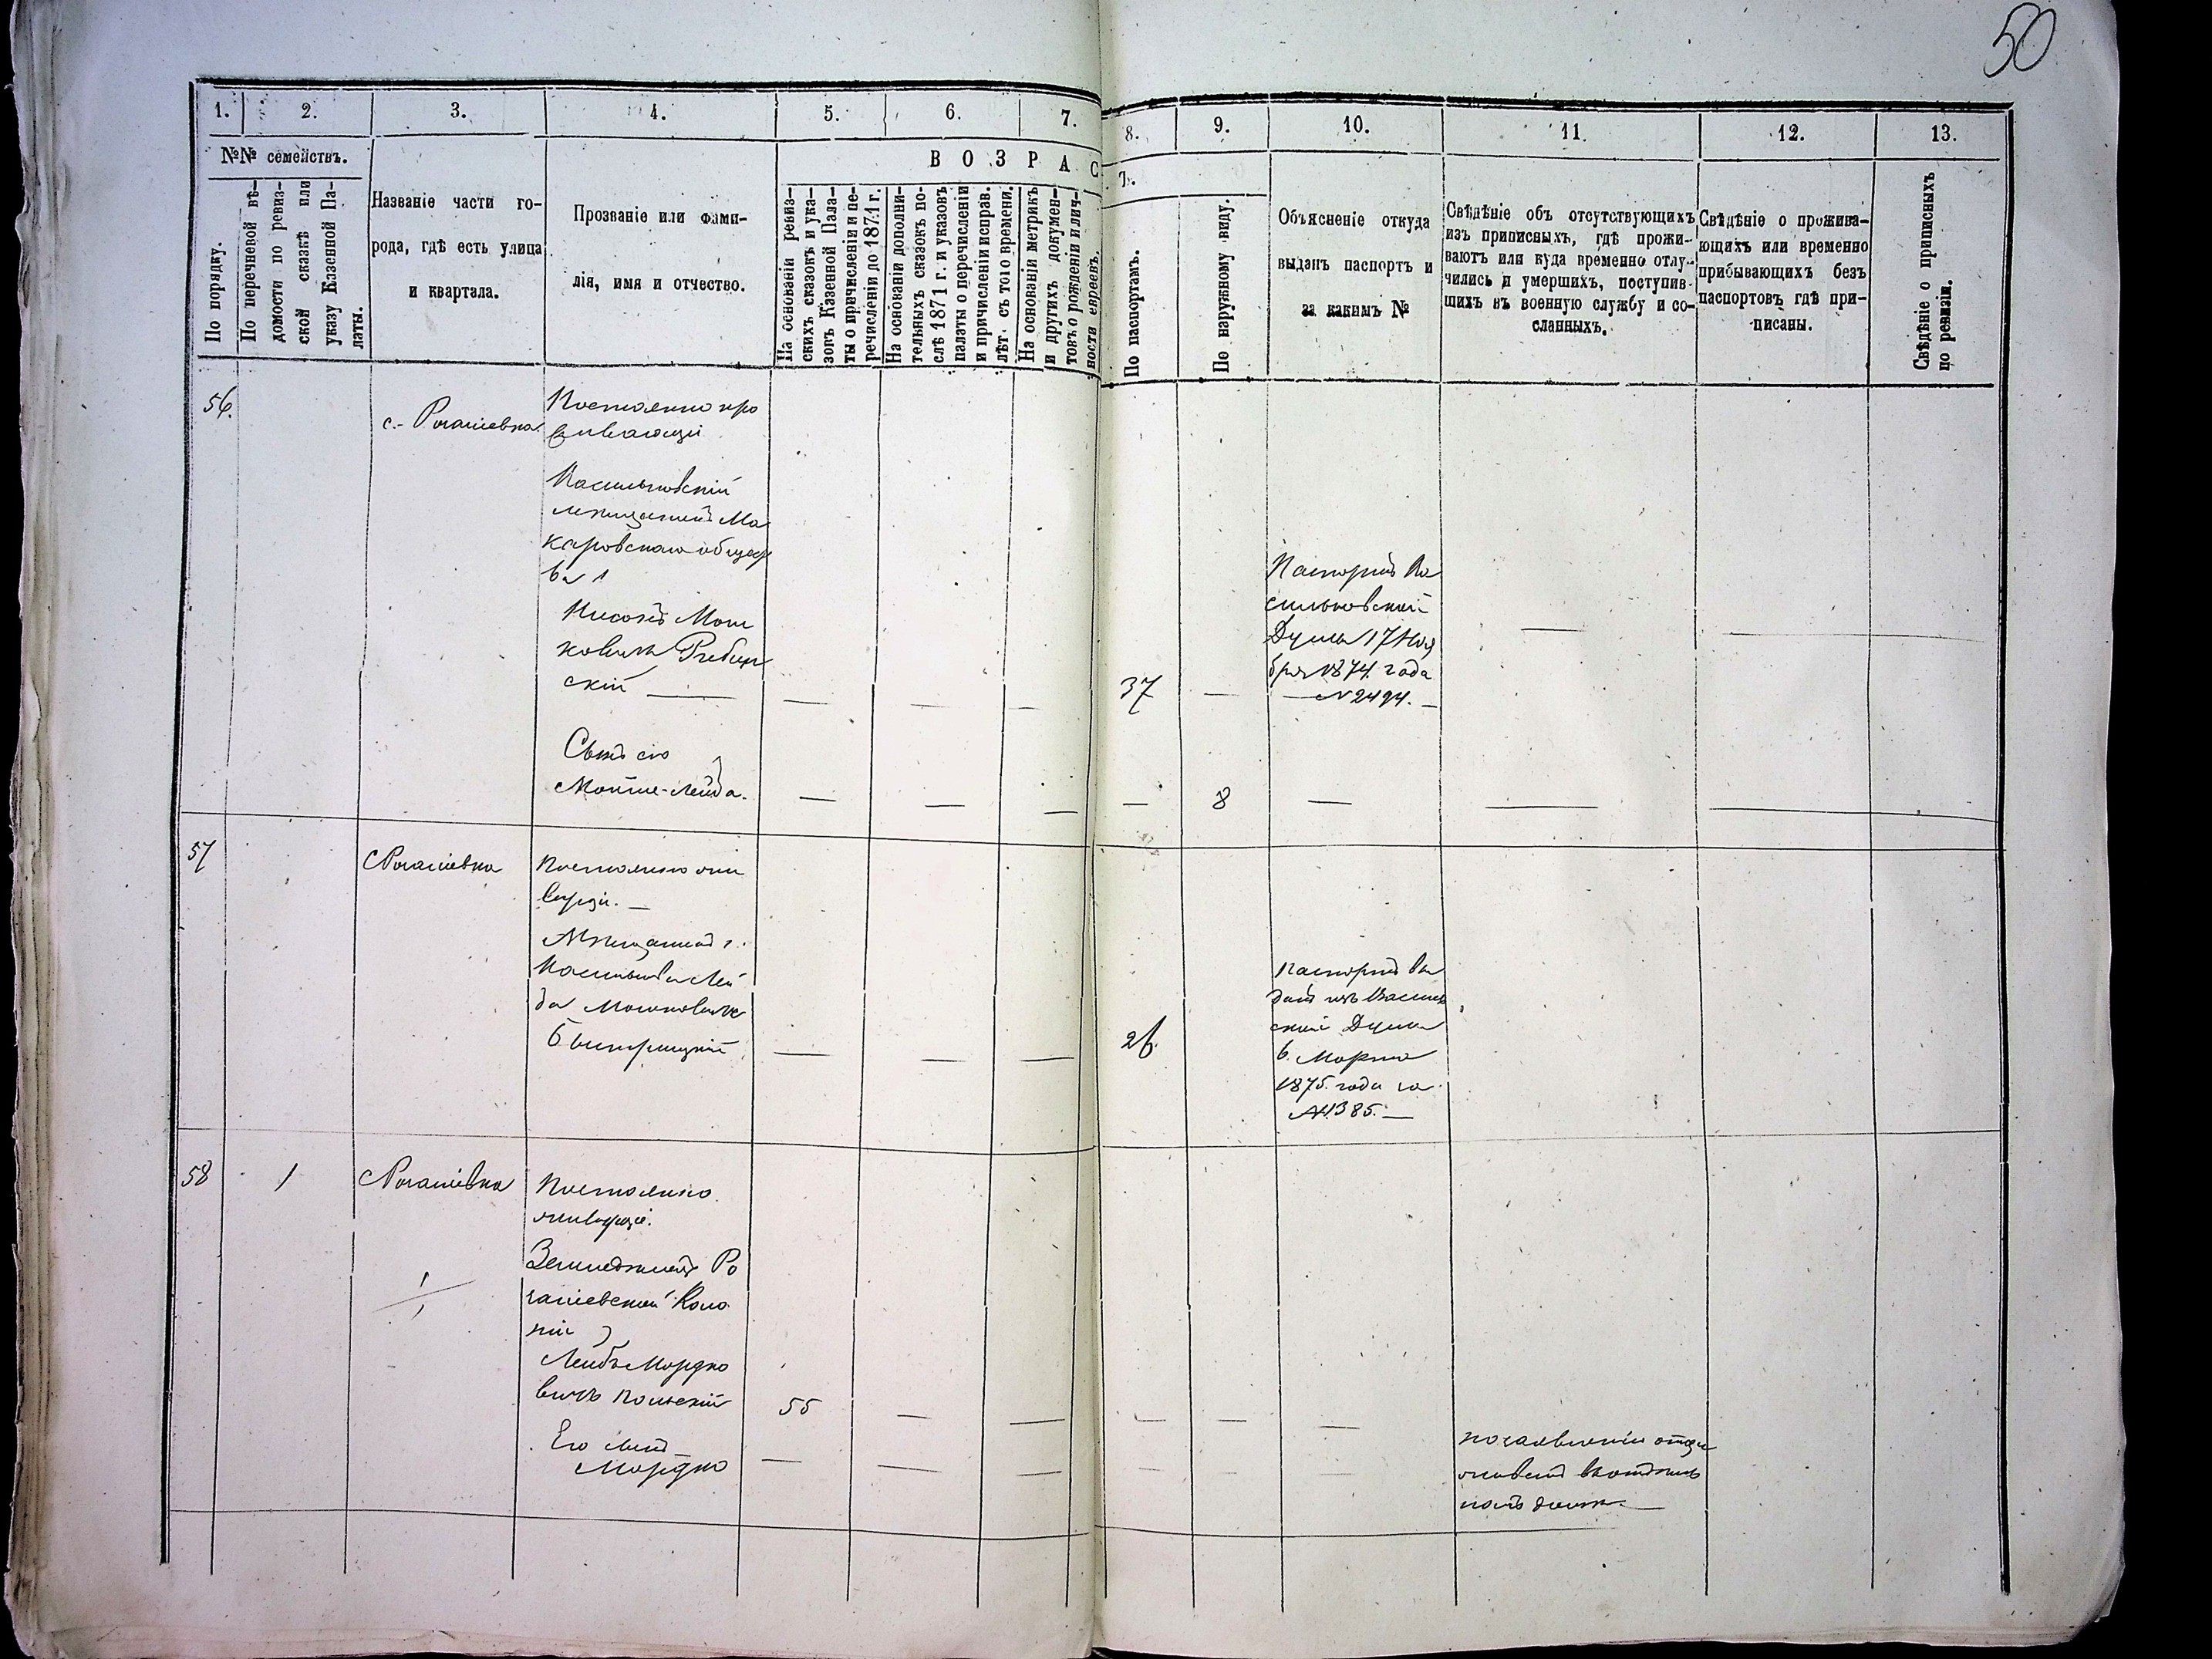 50
1.
2.
3.
4.
5.
6.
7.
8.
9.
10.
11.
12.
13.
№№ семействъ.
ВОЗРАС
Тъ.
По порядку.
По перечневой вѣ-
домости по ревиз-
ской сказкѣ или
указу Казенной Па-
латы.
Названіе части го-
рода, гдѣ есть улица
и квартала.
Прозваніе или фами-
лія, имя и отчество.
На основаніи ревиз-
скихъ сказокъ и ука-
зовъ Казенной Пала-
ты о причисленіи и пе-
речисленіи до 1871 г.
На основаніи дополни-
тельныхъ сказокъ по-
слѣ 1871 г. и указовъ
палаты о перечисленіи
и причисленіи исправ.
лѣт. съ того времени.
На основаніи метрикъ
и другихъ докумен-
товъ о рожденіи и лич-
ности евреевъ.
По паспортамъ.
По наружному виду.
Объясненіе откуда
выданъ паспортъ и
за какимъ №
Свѣдѣніе объ отсутствующихъ
изъ приписныхъ, гдѣ прожи-
ваютъ или куда временно отлу-
чились и умершихъ, поступив-
шихъ въ военную службу и со-
сланныхъ.
Свѣдѣніе о прожива-
ющихъ или временно
прибывающихъ безъ
паспортовъ гдѣ при-
писаны.
Свѣдѣніе о приписныхъ
по ревизіи.
56.
с.- Рогаліевка
Постоянно про
живающій
Васильковскій
мѣщанинъ Ма
каровскаго общес
ва
Мош
ковичъ
скій —
37
—
Паспортъ Ва
сильковской
Думы 17 Ноя
бря 1874. года
— N 2494. —
Сынъ его
Лейба.
8
57
С Рогаліевка
Постоянно жи
вущій. —
Мѣщанинъ г.
Василькова Лей
ба Мошковичъ
Быстрицкій
26.
Паспортъ вы
данъ изъ Василь
ской Думы
6. Марта
1875. года за
№ 1385. —
58
1
С Рогаліевка
Постоянно
живущіе.
1/1
Земледѣлецъ Ро
галіевской Коло
ніи
Лейба Мордко
вичъ Польскій
55
Его сынъ
Мордко
по заявленію отца